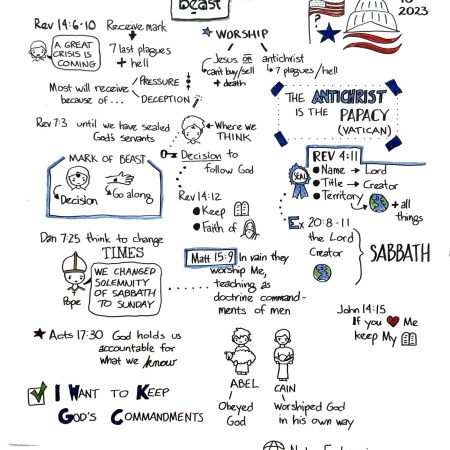 Beast
2023
Rev 14:6-10
Receive mark
A GREAT
CRISIS IS
COMING
7 last plagues
+ hell
WORSHIP
Jesus OR antichrist
can't buy/sell
+ death
7 plagues/hell
Most will receive
because of...
PRESSURE
DECEPTION
THE ANTICHRIST
IS THE PAPACY
(VATICAN)
Rev 7:3 until we have sealed
God's servants
Where we
THINK
Decision to
follow God
MARK OF BEAST
Decision
Go along
REV 4:11
SEAL
Name → Lord
Title → Creator
Territory
+ all
things
Rev 14:12
Keep
Faith of
Ex 20:8-11
the Lord
Creator
SABBATH
Dan 7:25 think to change
TIMES
Pope
WE CHANGED
SOLEMNITY
OF SABBATH
TO SUNDAY
Matt 15:9 In vain they
worship Me,
teaching as
doctrine command-
ments of men
John 14:15
If you ❤ Me
keep My
Acts 17:30 God holds us
accountable for
what we know
ABEL
CAIN
Obeyed
God
Worshiped God
in his own way
I WANT TO KEEP
GOD'S COMMANDMENTS